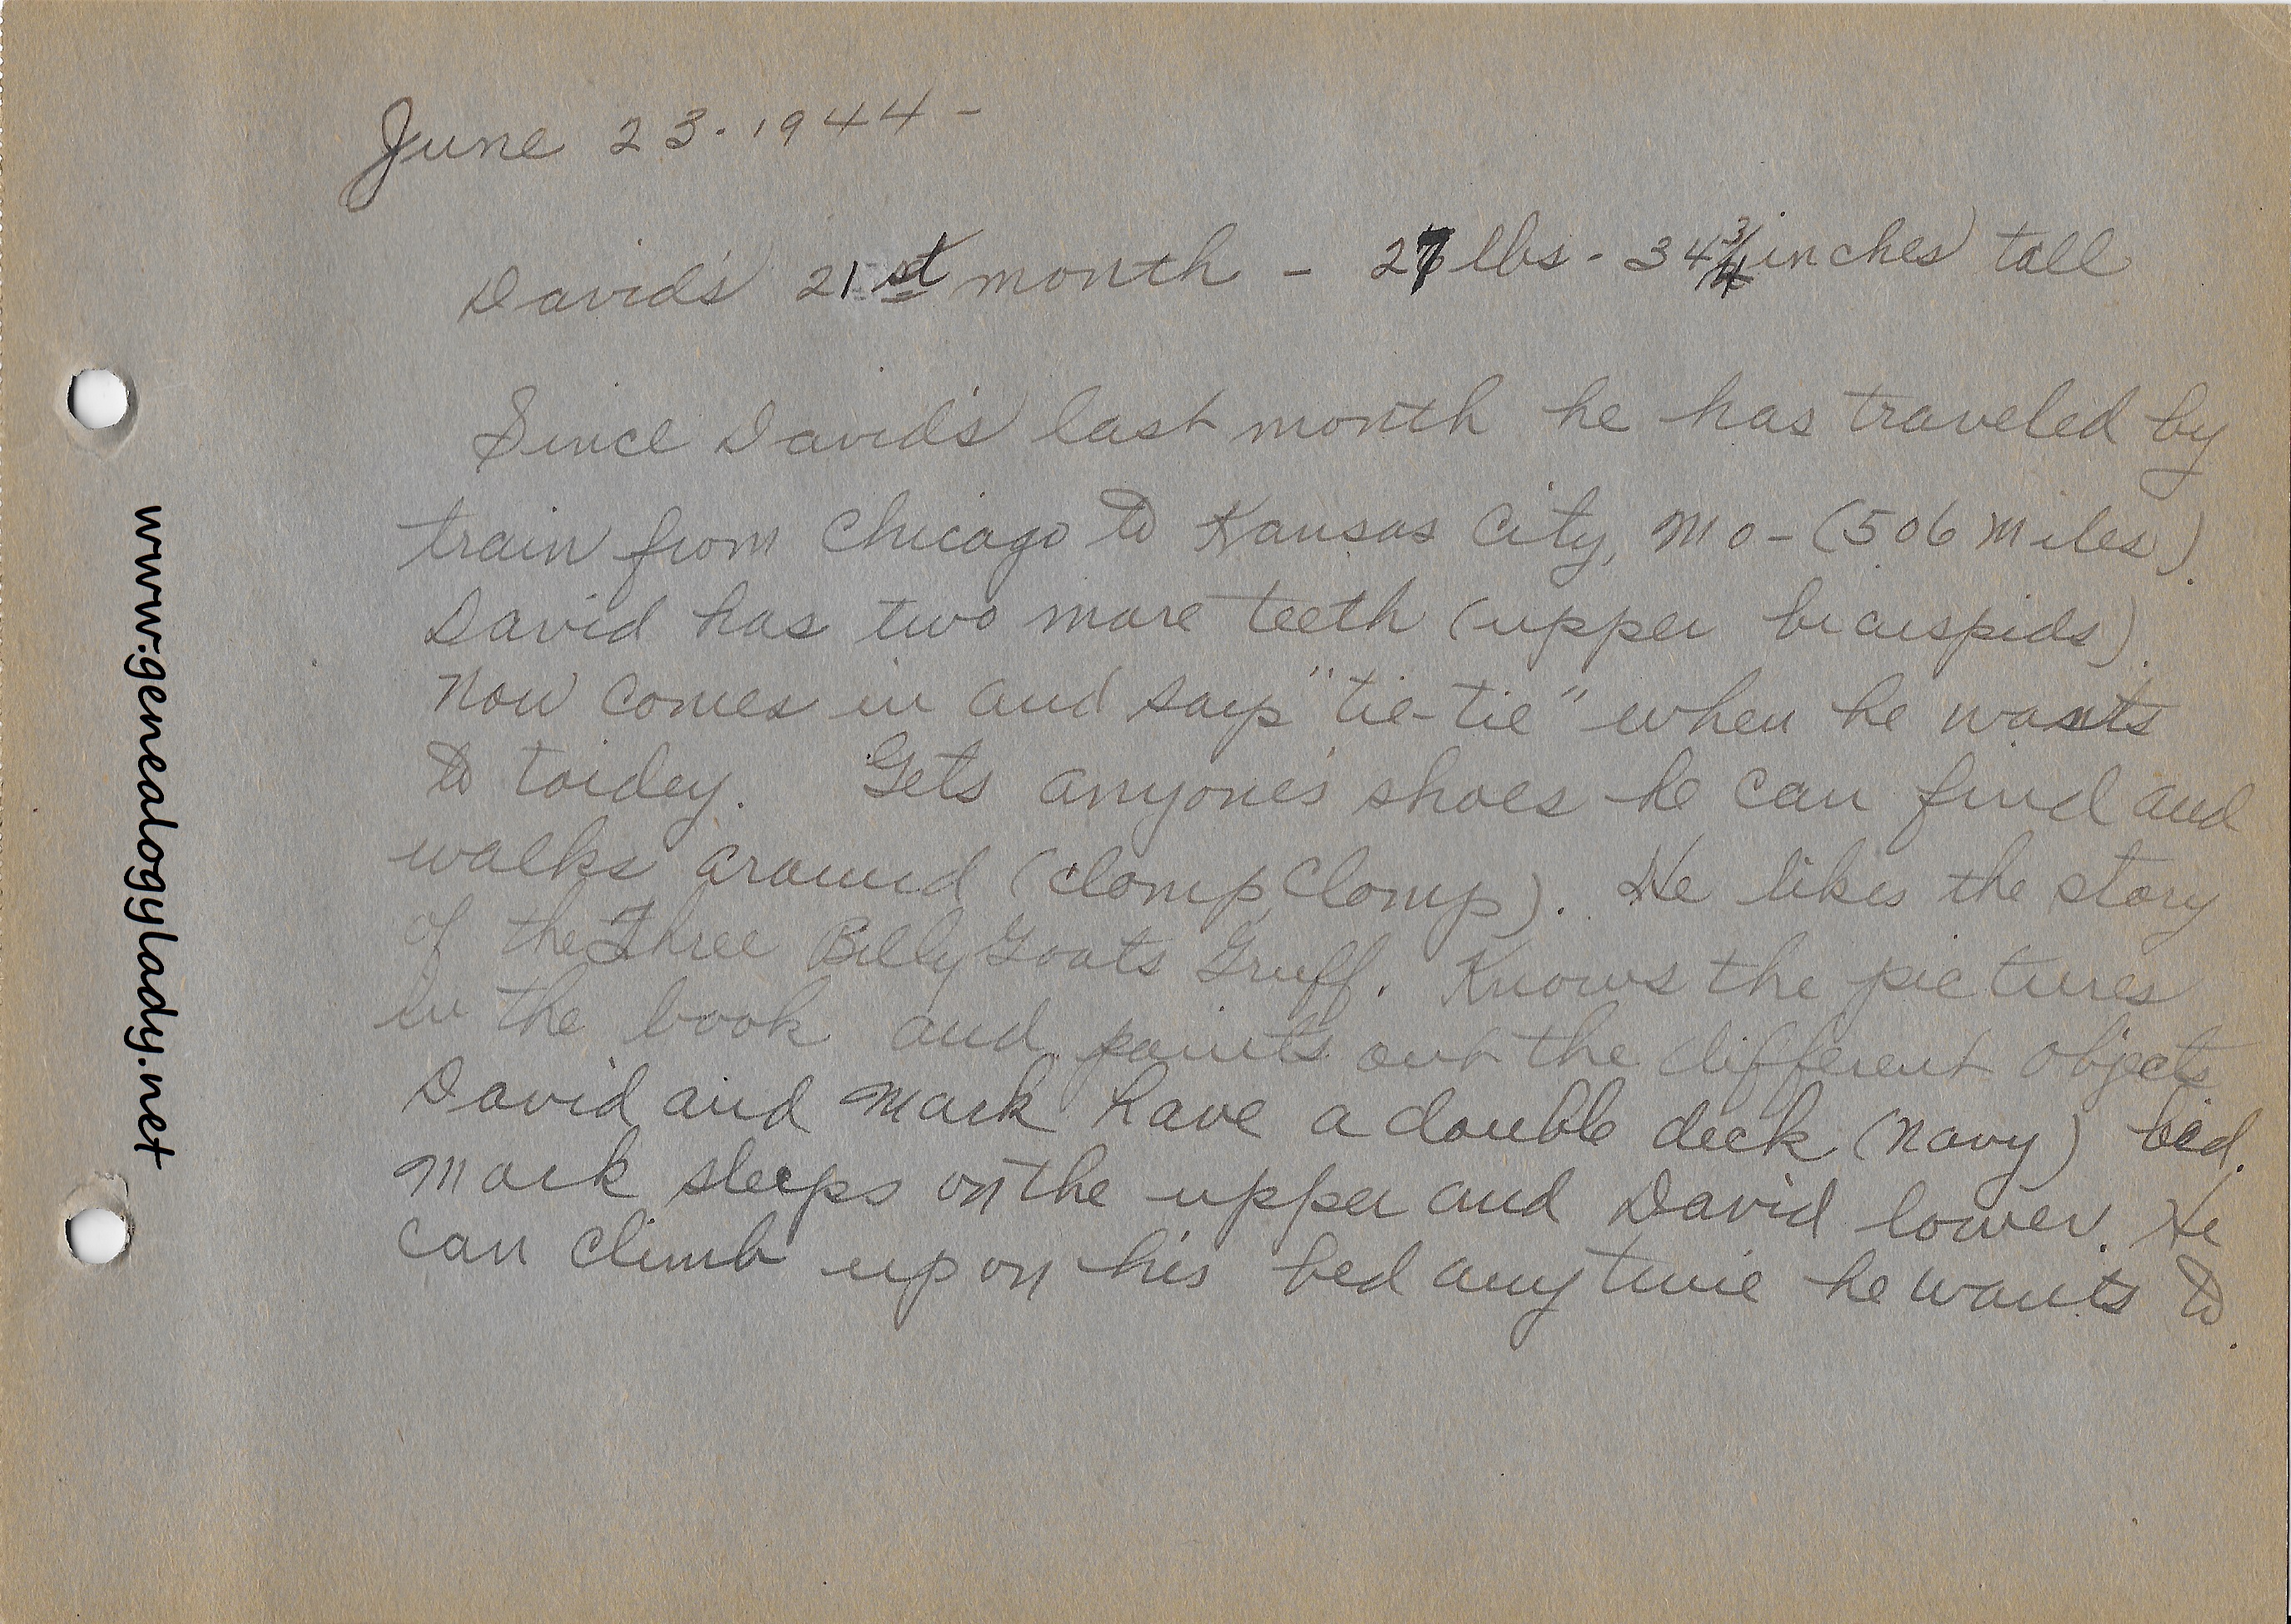 June 23. 1944 -
David's 21st month - 27 lbs - 34 3/4 inches tall
Since David's last month he has traveled by
train from Chicago to Kansas City, Mo - (506 miles).
David has two more teeth (upper bicuspids).
Now comes in and says "tie-tie" when he wants
to toidey. Gets anyone's shoes he can find and
walks around (clomp, clomp). He likes the story
of the Three Billy Goats Gruff. Knows the pictures
in the book and points out the different objects
David and Mark have a double deck (navy) bed.
Mark sleeps on the upper and David lower. He
can climb up on his bed any time he wants to.
www.genealogylady.net